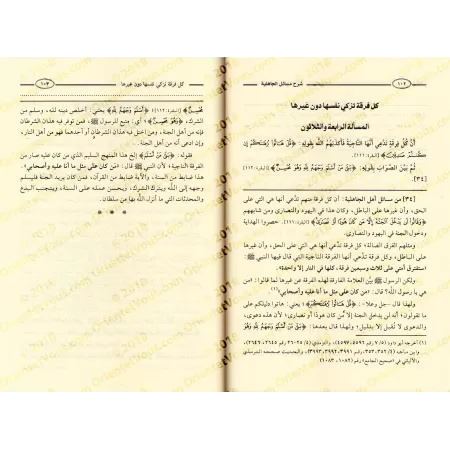 ١٠٢ شرح مسائل الجاهلية
كل فرقة تزكي نفسها دون غيرها
المسألة الرابعة والثلاثون
أنَّ كُلَّ فِرْقَةٍ تَدَّعِي أَنَّهَا النَّاجِيَةُ فَأَكْذَبَهُمُ اللَّهُ بِقَوْلِهِ: ﴿قُلْ هَاتُوا بُرْهَانَكُمْ إِن
كُنتُمْ صَادِقِينَ﴾ [البقرة: ١١١]
ثُمَّ بَيَّنَ الصَّوَابَ بِقَوْلِهِ: ﴿بَلَىٰ مَنْ أَسْلَمَ وَجْهَهُ لِلَّهِ وَهُوَ مُحْسِنٌ﴾ [البقرة: ١١٢]
[٣٤]
[٣٤] من مسائل أهل الجاهلية: أن كل فرقة منهم تدَّعي أنها هي التي على
الحق، وأن غيرها على الباطل، وكان هذا في اليهود والنصارى ومن شابههم
﴿وَقَالُوا لَن يَدْخُلَ الْجَنَّةَ إِلَّا مَن كَانَ هُودًا أَوْ نَصَارَىٰ﴾ [البقرة: ١١١]، حصروا الهداية
ودخول الجنة في اليهود والنصارى.
ومثلهم الفرق الضالة؛ كل فرقة تدَّعي أنها هي التي على الحق، وأن غيرها
على الباطل، وكل فرقة تدَّعي أنها الفرقة الناجية التي قال فيها النبي ﷺ:
«ستفترق أمتي على ثلاث وسبعين فرقة، كلها في النار إلا واحدة».
ولكن الرسول ﷺ بيَّن العلامة الفارقة لهذه الفرقة عن غيرها لما قالوا: من
هي يا رسول الله؟ قال: «من كان على مثل ما أنا عليه وأصحابي»(١)
ولهذا قال -جل وعلا-: ﴿قُلْ هَاتُوا بُرْهَانَكُمْ﴾؛ يعني: هاتوا دليلكم على
ما تقولون؛ أنه لن يدخل الجنة إلا من كان هودًا أو نصارى؛ لأن هذه دعوى،
والدعوى لا تُقبل إلا بدليل؛ ولهذا قال بعدها: ﴿بَلَىٰ مَنْ أَسْلَمَ وَجْهَهُ لِلَّهِ وَهُوَ
(١) أخرجه أبو داود
والحديث صححه الترمذي
كل فرقة تزكي نفسها دون غيرها ١٠٣
مُحْسِنٌ﴾ [البقرة: ١١٢]؛ ﴿أَسْلَمَ وَجْهَهُ لِلَّهِ﴾ يعني: أخلص دينه لله، وسلم من
الشرك، ﴿وَهُوَ مُحْسِنٌ﴾؛ أي: متبع للرسول ﷺ، فمن توفر فيه هذان الشرطان
فإنه من أهل الجنة، ومن اختل فيه هذان الشرطان أو أحدهما فهو من أهل النار،
وإن ادعى أنه من أهل الجنة.
فقوله: ﴿بَلَىٰ مَنْ أَسْلَمَ﴾ إلخ هذا المنهج السليم الذي من كان عليه صار من
الفرقة الناجية؛ لأن النبي ﷺ قال: «من كان على مثل ما أنا عليه وأصحابي».
هذا ضابط من السنة، والآية ضابط من القرآن، فمن كان يريد الجنة فليسلم
وجهه إلى الله ويترك الشرك، ويحسن عمله على السنة، ويتجنب البدع
والمحدثات التي ما أنزل الله بها من سلطان.
* * *